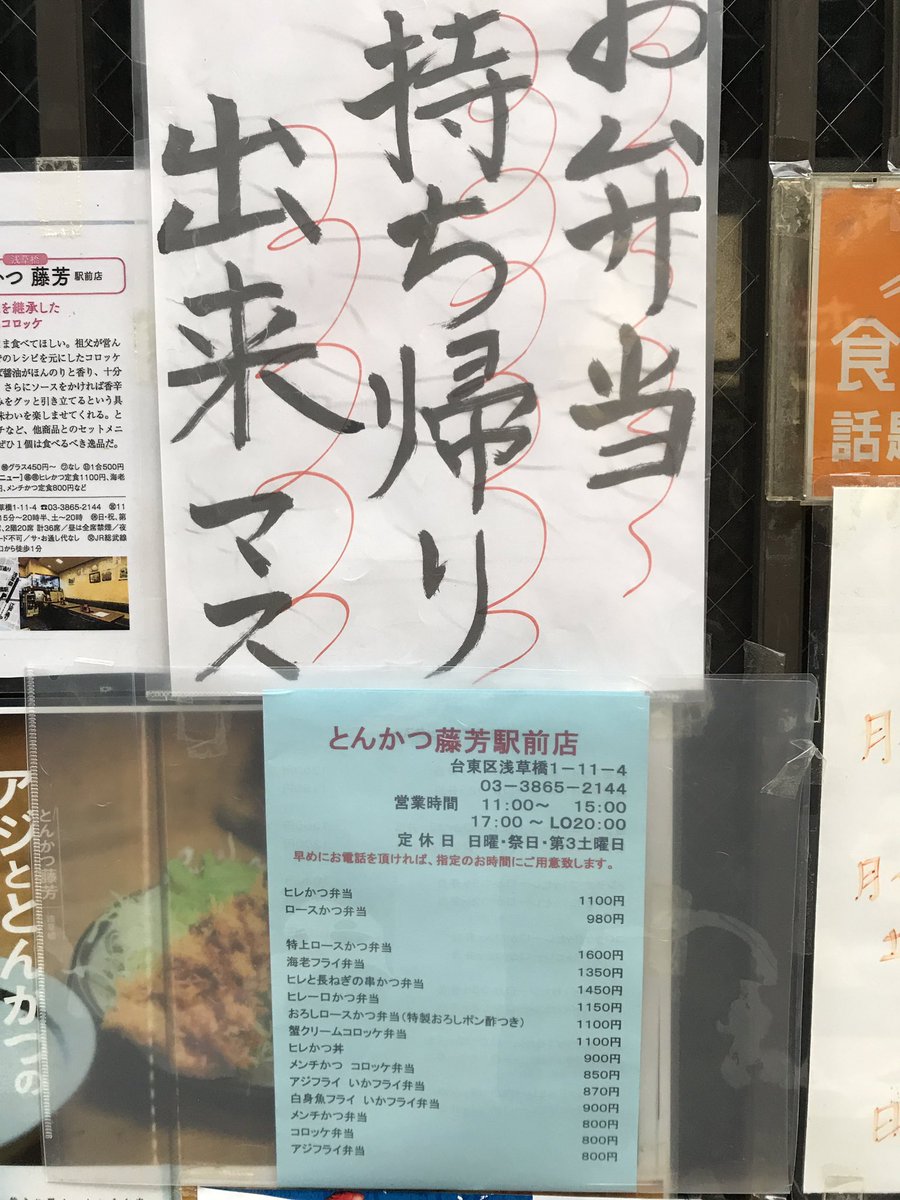 お弁当
持ち帰り
出来マス
浅草橋
かつ 藤芳 駅前店
を継承した
コロッケ
ま食べてほしい。祖父が営ん
でのレシピを元にしたコロッケ
ば醤油がほんのりと香り、十分
。さらにソースをかければ香辛
みをグッと引き立てるという具
味わいを楽しませてくれる。と
チなど、他商品とのセットメニ
ぜひ1個は食べるべき逸品だ。
グラス450円〜 なし 1合500円
ニュー】ヒレかつ定食1100円、海老
円、メンチかつ定食800円など
草橋1-11-4 ☎03-3865-2144 11
15分〜20時半、土〜20時 日・祝、第
、2階20席 計36席/昼は全席禁煙/夜
ード不可/サ・お通し代なし JR総武線
口から徒歩1分
食
話題
とんかつ藤芳駅前店
台東区浅草橋1-11-4
03-3865-2144
営業時間 11:00〜 15:00
17:00 〜 LO20:00
定休日 日曜・祭日・第3土曜日
早めにお電話を頂ければ、指定のお時間にご用意致します。
ヒレかつ弁当 1100円
ロースかつ弁当 980円
特上ロースかつ弁当 1600円
海老フライ弁当 1350円
ヒレと長ねぎの串かつ弁当 1450円
ヒレ一口かつ弁当 1150円
おろしロースかつ弁当(特製おろしポン酢つき) 1100円
蟹クリームコロッケ弁当 1100円
ヒレかつ丼 900円
メンチかつ コロッケ弁当 850円
アジフライ いかフライ弁当 870円
白身魚フライ いかフライ弁当 900円
メンチかつ弁当 800円
コロッケ弁当 800円
アジフライ弁当 800円
アジととんかつの
とんかつ藤芳
月
月
土